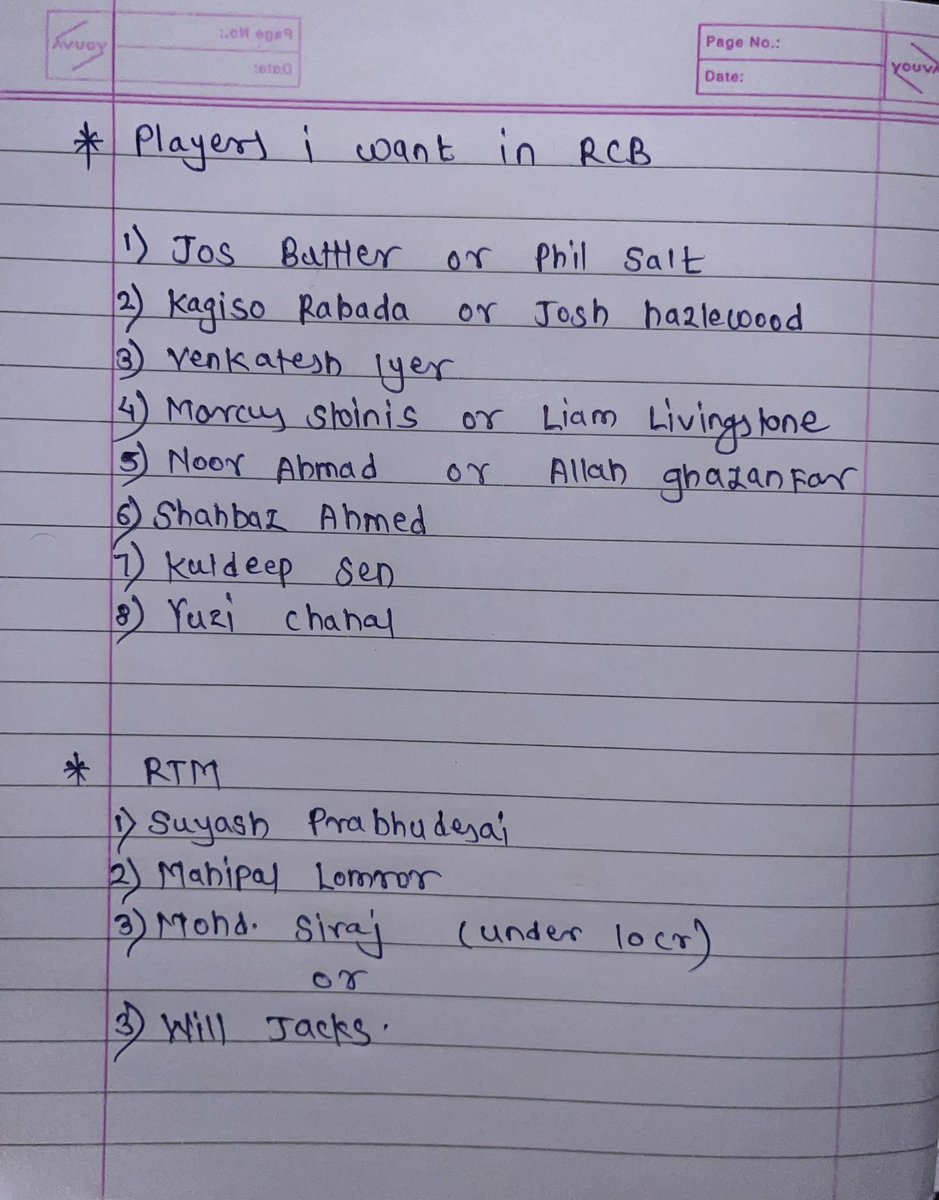 Page No.:
Date:
YOUVA
* Players i want in RCB
1) Jos Buttler or Phil Salt
2) Kagiso Rabada or Josh hazlewood
3) Venkatesh Iyer
4) Marcus Stoinis or Liam Livingstone
5) Noor Ahmad or Allah ghazanFar
6) Shahbaz Ahmed
7) Kuldeep Sen
8) Yuzi chahal
* RTM
1) Suyash Prabhudesai
2) Mahipal Lomror
3) Mohd. Siraj (under 10cr)
or
3) Will Jacks.